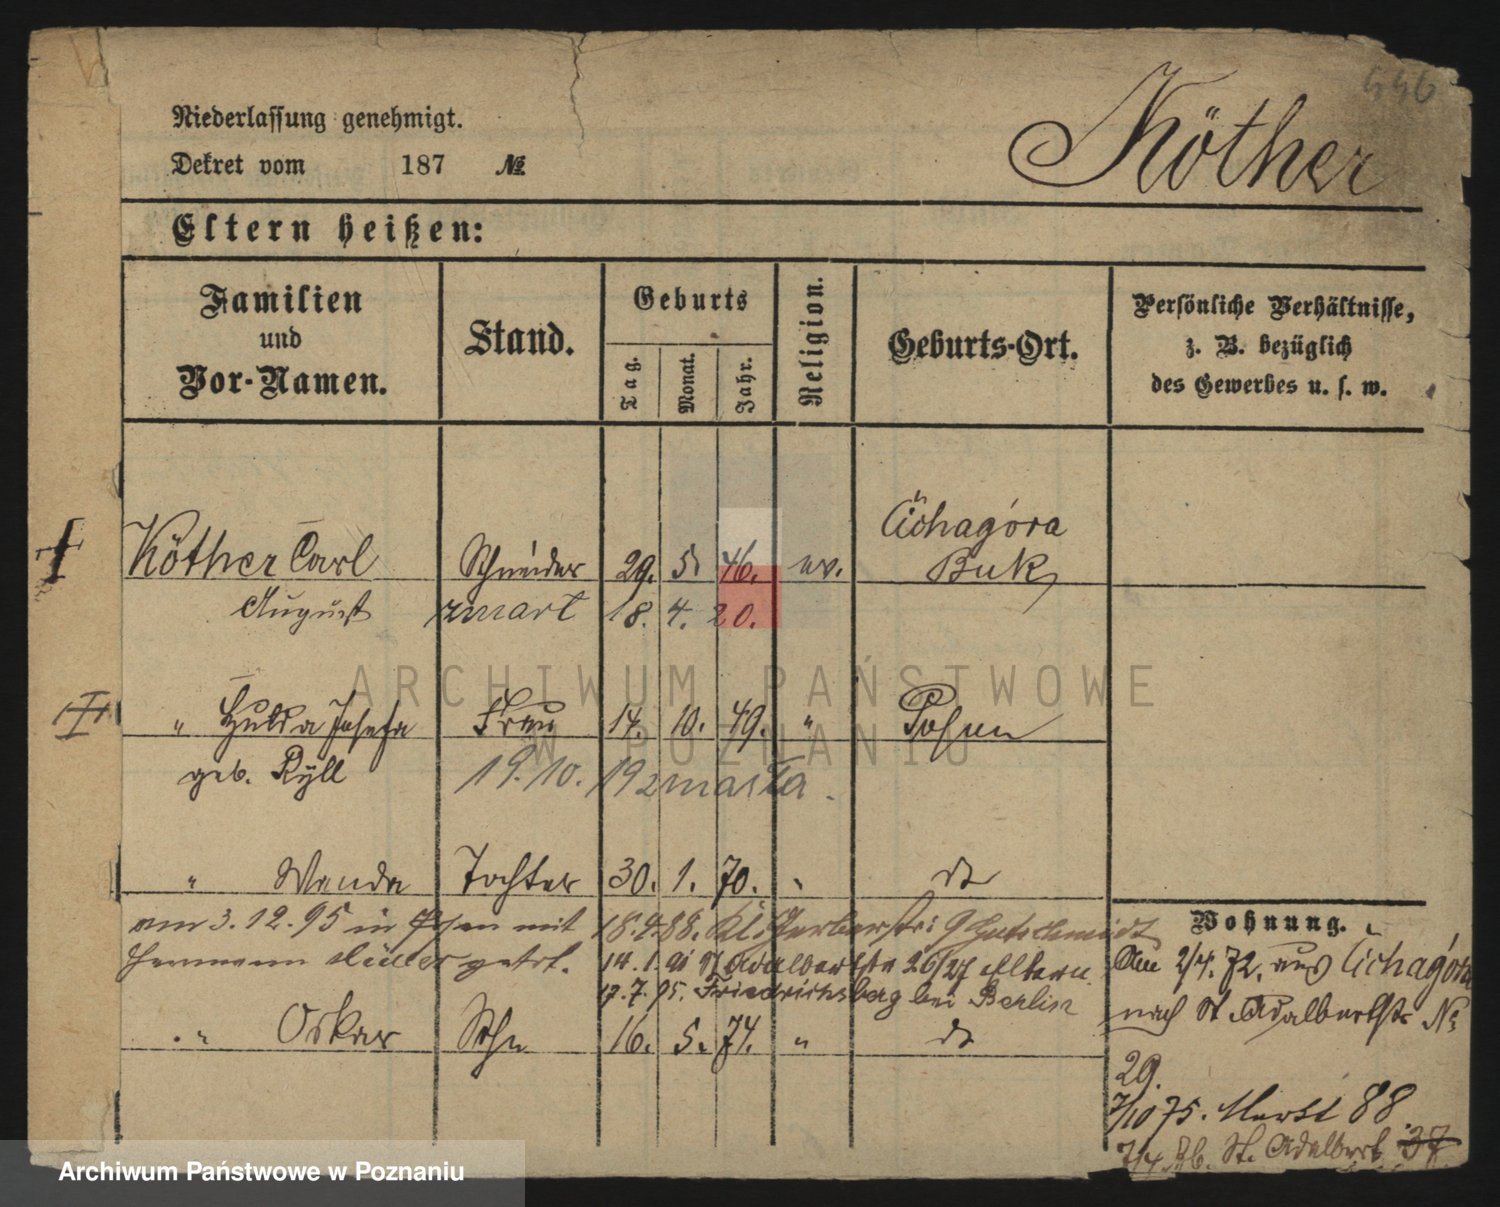 446
Niederlassung genehmigt.
Köther
Dekret vom 187 №
Eltern heißen:
Familien und Vor-Namen.
Stand.
Geburts
Tag.
Monat.
Jahr.
Religion.
Geburts-Ort.
Persönliche Verhältnisse,
z. B. bezüglich
des Gewerbes u. s. w.
Cichagóra
Köther Carl Schneider 29. 5. 46. ev. Buk
August zmarł 18. 4. 20.
" Hulda Josefa Frau 14. 10. 49. " Posen
geb. Ryll 19. 10. 19 zmarła.
" Wanda Tochter 30. 1. 70. " do
am 3.12.95 in Posen mit
Hermann Müller getrt.
18.4.88. Kl. Gerberstr: 9
14.1. St Adalbertstr 26/27 Eltern
17.7.95. Friedrichsberg bei Berlin
" Oskar Sohn 16. 5. 74. " do
Wohnung.
Am 2/4. 72. aus Cichagóra
nach St. Adalbertstr №
29.
7/10 75. Markt 88
7/4 St. Adalbert 37
ARCHIWUM PAŃSTWOWE
W POZNANIU
Archiwum Państwowe w Poznaniu